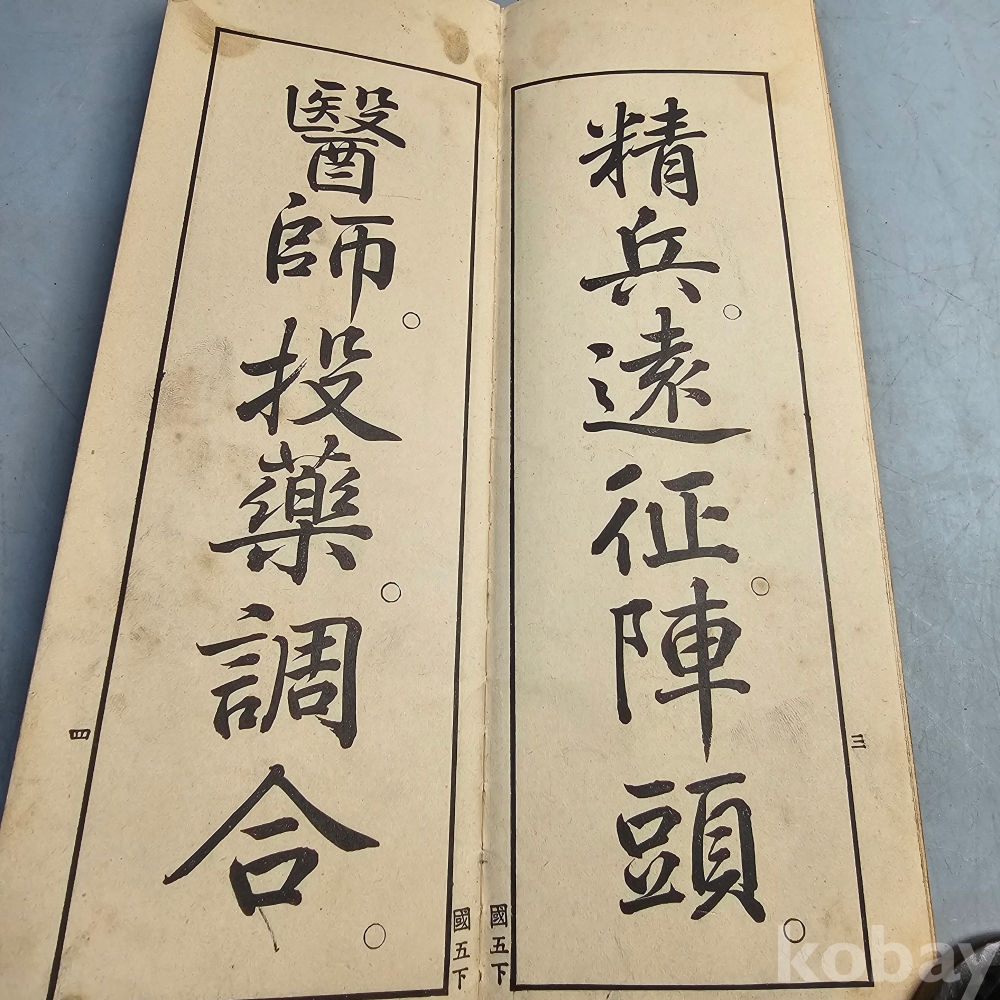 精兵○遠征○陣頭○
三
國五下
醫師○投藥○調合○
四
國五下
kobay